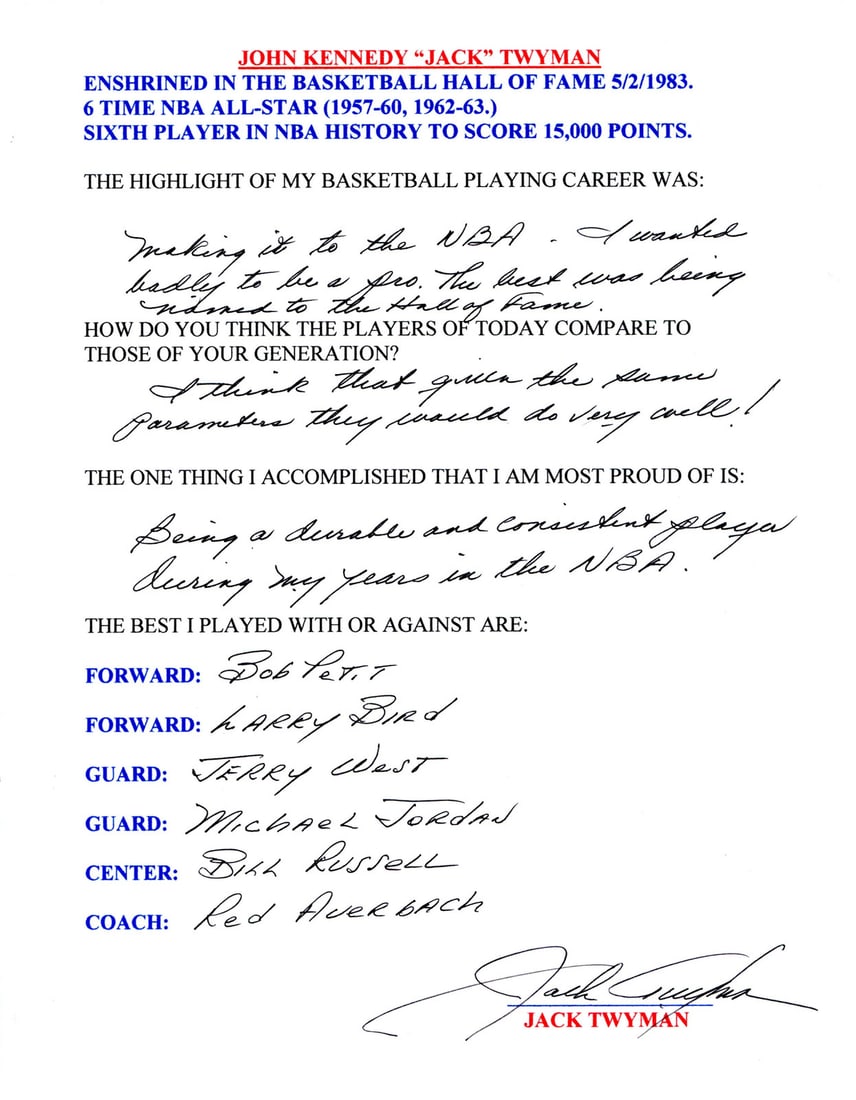 JOHN KENNEDY “JACK” TWYMAN
ENSHRINED IN THE BASKETBALL HALL OF FAME 5/2/1983.
6 TIME NBA ALL-STAR (1957-60, 1962-63.)
SIXTH PLAYER IN NBA HISTORY TO SCORE 15,000 POINTS.
THE HIGHLIGHT OF MY BASKETBALL PLAYING CAREER WAS:
making it to the NBA. I wanted
badly to be a pro. The best was being
named to the Hall of Fame.
HOW DO YOU THINK THE PLAYERS OF TODAY COMPARE TO
THOSE OF YOUR GENERATION?
I think that given the same
parameters they would do very well!
THE ONE THING I ACCOMPLISHED THAT I AM MOST PROUD OF IS:
Being a durable and consistent player
during my years in the NBA.
THE BEST I PLAYED WITH OR AGAINST ARE:
FORWARD: Bob Petit
FORWARD: LARRY BIRd
GUARD: JERRY WesT
GUARD: MichAeL JoRdAN
CENTER: BiLL RusseLL
COACH: Red AueRbAch
Jack Twyman
JACK TWYMAN